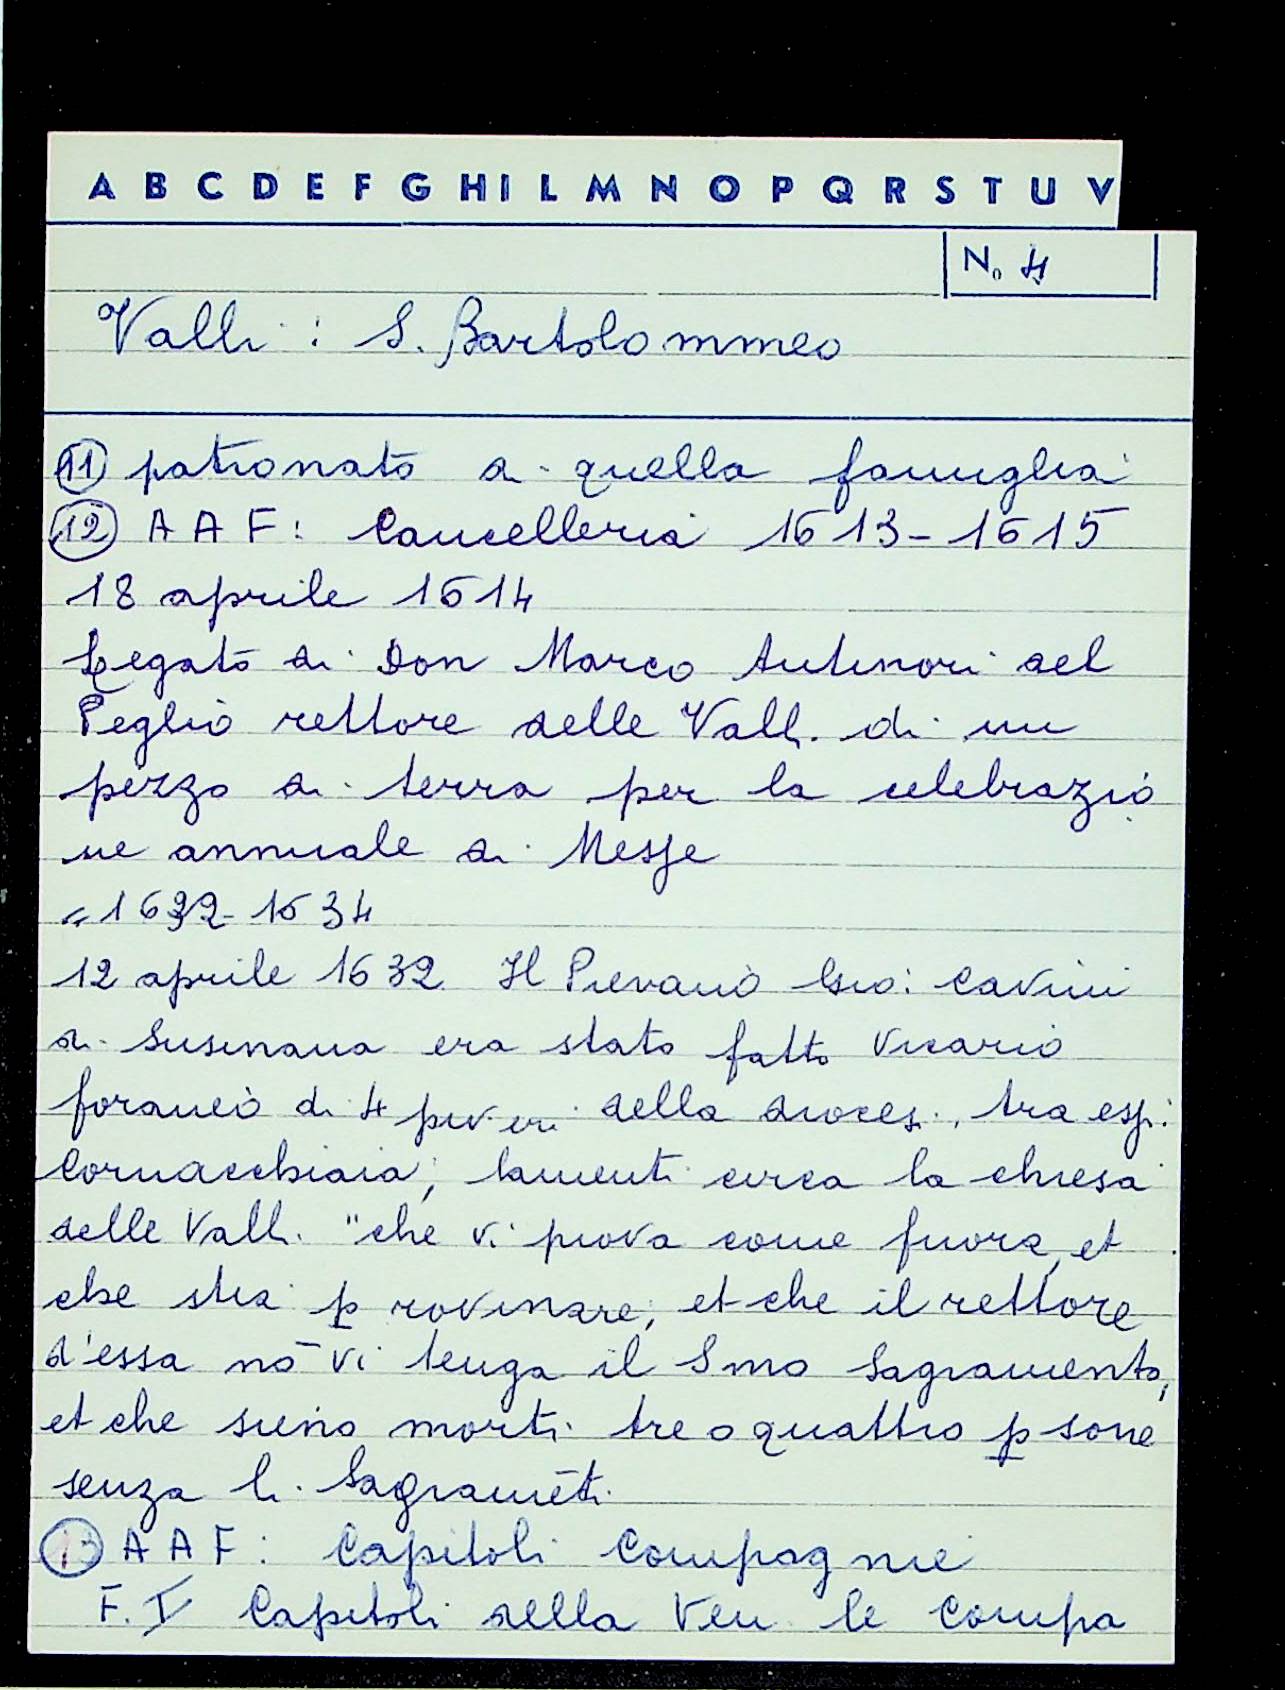 A B C D E F G H I L M N O P Q R S T U V
N. 4
Valli: S. Bartolommeo
11 patronato a quella famiglia
12 AAF: Cancelleria 1613-1615
18 aprile 1614
Legato di Don Marco Antinori del
Peglio rettore delle Valli di un
pezzo di terra per la celebrazio
ne annuale di Messe
" 1632-1634
12 aprile 1632 Il Pievano Gio: Cavini
di Susinana era stato fatto Vicario
foraneo di 4 pivieri della diocesi, tra essi
Cornacchiaia; lamenti circa la chiesa
delle Valli "che vi piova come fuora, et
che stia p rovinare, et che il rettore
d'essa nō vi tenga il Smo Sagramento,
et che sieno morti tre o quattro psone
senza li Sagramēti
13 AAF: Capitoli Compagnie
F. I Capitoli della Ven le Compa